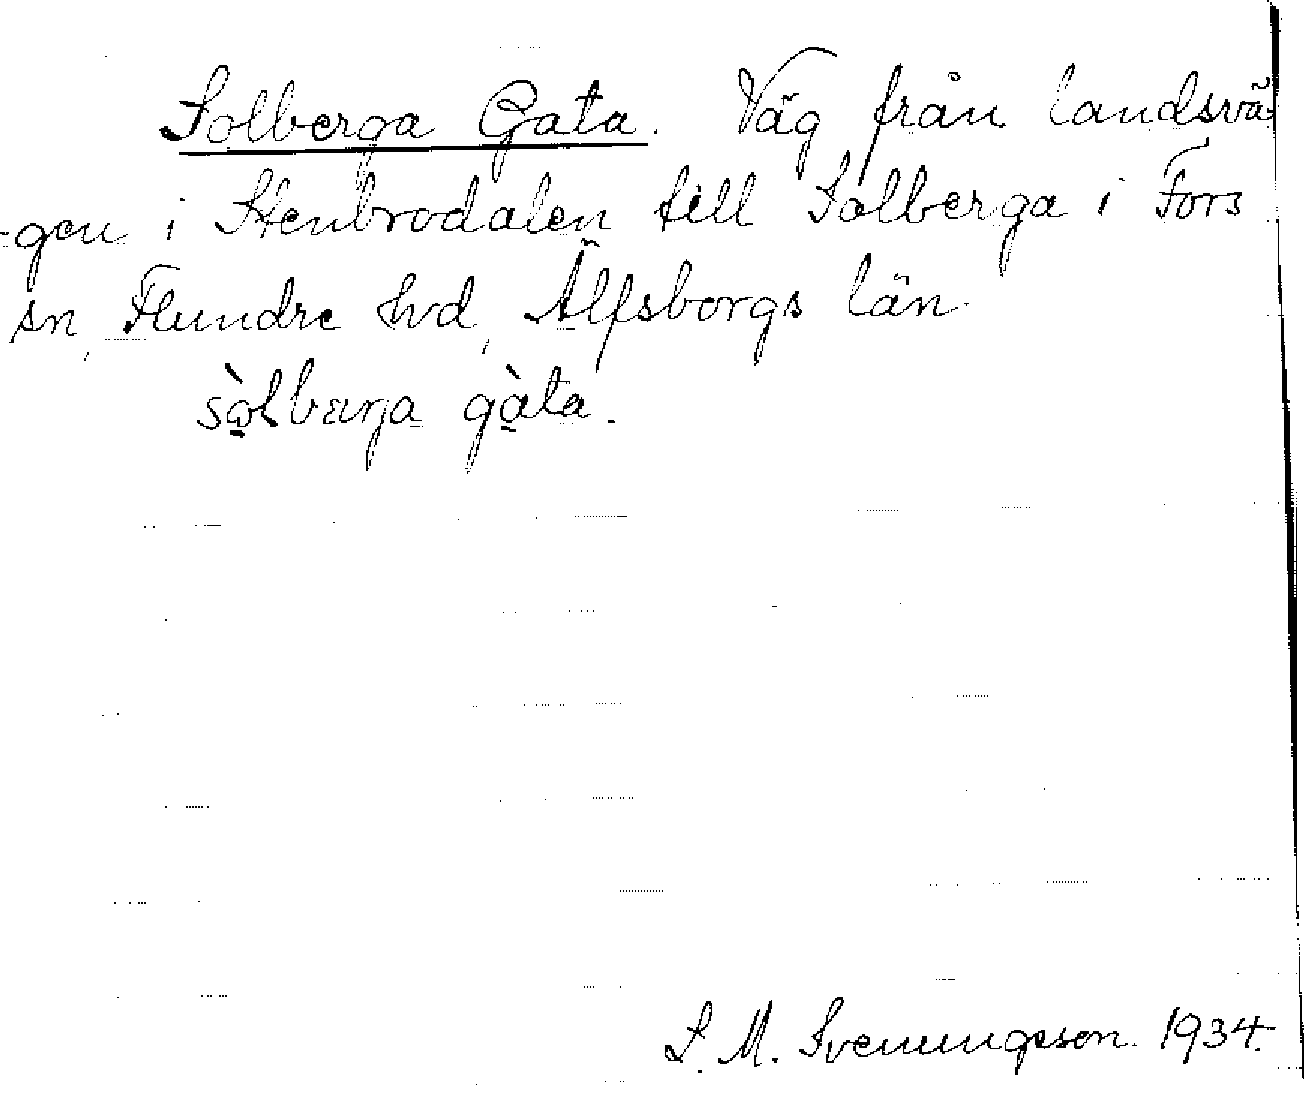 Solberga Gata. Väg från landsvä-
-gen i Stenbrodalen till Solberga i Fors
sn, Flundre hvd, Älfsborgs län
sòlbærja gàta.
S. M. Svenungsson. 1934.